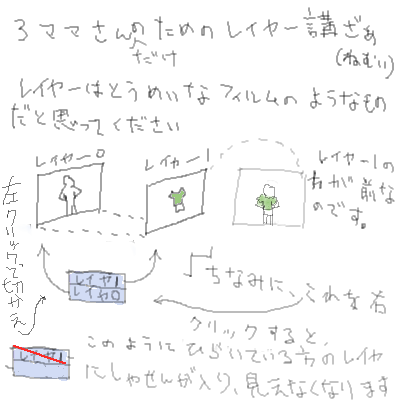 3ママさんのためのレイヤー講ざぁ
だけ
(ねむい)
レイヤーはとうめいなフィルムのようなもの
だと思ってください
レイヤー0
レイヤー1
レイヤー1の
ちが前な
のです。
左クリックで切かえ
レイヤ1
レイヤ0
ちなみに、これを右
クリックすると、
レイヤ1
このようにひらいている方のレイヤ
にしゃせんが入り、見えなくなります